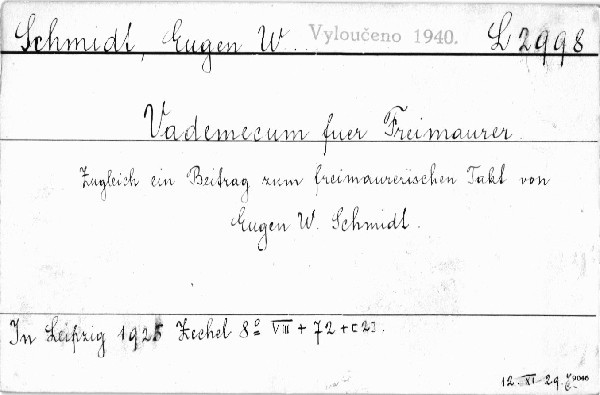 Schmidt, Eugen W. Vyloučeno 1940. L 2998
Vademecum fuer Freimaurer.
Zugleich ein Beitrag zum freimaurerischen Takt von
Eugen W. Schmidt.
In Leipzig 1925 Zechel 8º VIII + 72 + [2].
12. XI 29.